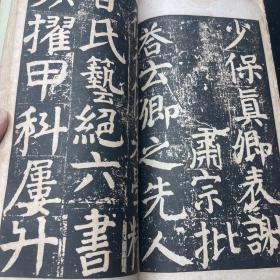 少保眞卿表謝
肅宗批
荅云卿之先人
百氏藝絕六書
擢甲科屢升